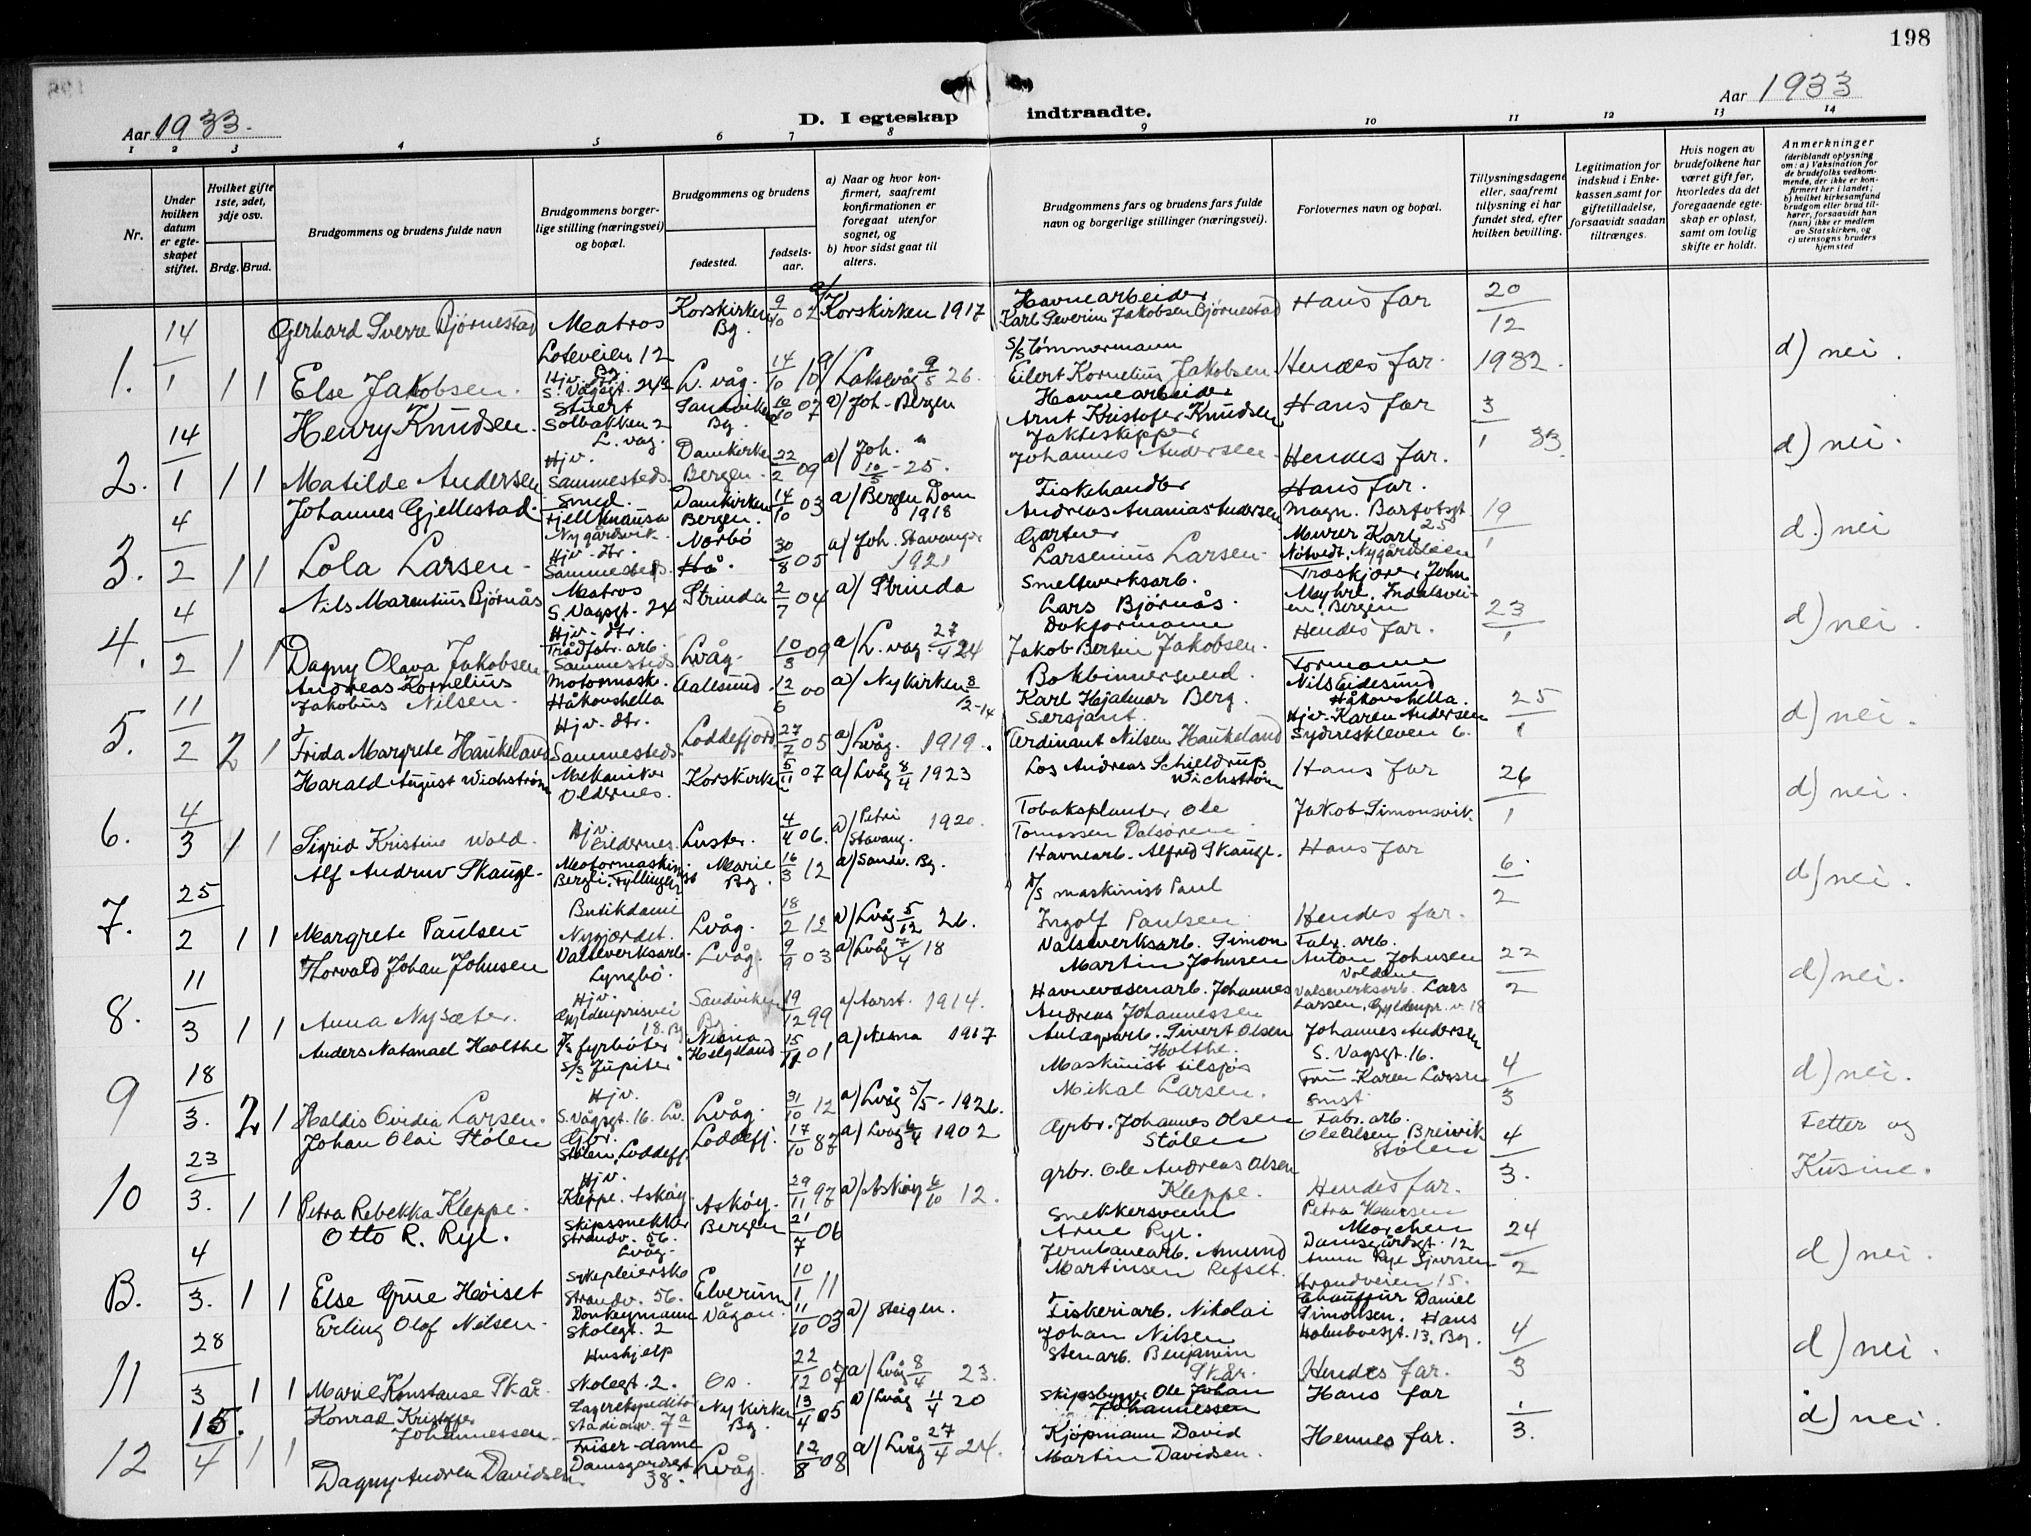 198
Aar 1933.
D. I egteskap indtraadte.
Aar 1933
1 2 3 4 5 6 7 8 9 10 11 12 13 14
Nr.
Under hvilken datum er egteskapet stiftet.
Hvilket gifte 1ste, 2det, 3dje osv.
Brdg. Brud.
Brudgommens og brudens fulde navn
Brudgommens borgerlige stilling (næringsvei) og bopæl.
Brudgommens og brudens
fødested.
fødselsaar.
a) Naar og hvor konfirmert, saafremt konfirmationen er foregaat utenfor sognet, og
b) hvor sidst gaat til alters.
Brudgommens fars og brudens fars fulde navn og borgerlige stillinger (næringsvei).
Forlovernes navn og bopæl.
Tillysningsdagene eller, saafremt tillysning ei har fundet sted, efter hvilken bevilling.
Legitimation for indskud i Enkekassen samt for giftetilladelse, forsaavidt saadan tiltrænges.
Hvis nogen av brudefolkene har været gift før, hvorledes da det foregaaende egteskap er opløst, samt om lovlig skifte er holdt.
Anmerkninger
(deriblandt oplysning om: a) Vaksination for de brudefolks vedkommende, der ikke er konfirmert her i landet; b) hvilket kirkesamfund brudgom eller brud tilhører, forsaavidt han (hun) ikke er medlem av Statskirken, og c) utensogns bruders hjemsted
1. 14/1 1 1 Gerhard Sverre Bjørnestad Matros Loteveien 12 Bg. Korskirken Bg. 9/10 02 a/ Korskirken 1917 Havnearbeider Karl Severin Jakobsen Bjørnestad Hans far 20/12 1932. d) nei.
Else Jakobsen. Hjv. S. Vågsgt. 24 L. våg. 14/10 10 a/ Laksevåg 9/5 26. S/S Tømmermann Eilert Kornelius Jakobsen Hendes far.
2. 14/1 1 1 Henry Knudsen. Stuert Solbakken 2 L. vag. Sandviken Bg. 16/10 07 a/ Joh. Bergen Havnearbeider Arnt Kristofer Knudsen Hans far 3/1 33. d) nei.
Matilde Andersen Hjv. Sammesteds Domkirke Bergen. 22/2 09 a/ Joh. " 10/5 - 25. Jakteskipper Johannes Andersen Hendes far.
3. 4/2 1 1 Johannes Gjellestad. Smed. Fjell Knausa Domkirken Bergen. 14/10 03 a/ Bergen Dom 1918 Fiskehandler Andreas Ananias Andersen Hans far. Magn. Barfotsgt 25 19/1 d.) nei
Lola Larsen Nygårdsvik Hjv. dtr. Sammesteds Nærbø Hå. 30/8 05 a/ Joh. Stavanger 1921 Gartner Larsenius Larsen Murer Karl Nøtvedt, Nygårdsveien
4. 4/2 1 1 Nils Marentius Bjørnås Matros S. Vagsgt. 24 Strinda 2/7 04 a/ Strinda Smelteverksarb. Lars Bjørnås. Træskjærer John Myhre. Indalsveien. Bergen 23/1 d) nei.
Dagny Olava Jakobsen Hjv. dtr. Trådfabr. arb. Sammesteds Lvåg. 10/3 09 a/ L. vag. 27/4 24 Dokformann Jakob Bertin Jakobsen. Hendes far.
5. 11/2 2 1 Andreas Kornelius Jakobus Nilsen. Motormask. Håkonshella Aalesund 12/6 00 a/ Nykirken 8/12-14 Bokbinnersvend. Karl Hjalmar Berg. Formann Nils Eidesund Håkonshella. 25/1 d) nei.
Frida Margrete Haukeland Hjv. dtr. Sammesteds Loddefjord 27/7 05 a/ Lvåg. 1919. Sersjant. Ferdinant Nilsen Haukeland Hjv. Karen Andersen Sydneskleven 6.
6. 4/3 1 1 Harald August Wichstrøm Mekaniker Oldernes. Korskirken 5/11 07 a/ Lvåg 8/4 1923 Los Andreas Schieldrup Wichstrøm Hans far 26/1 d) nei.
Sigrid Kristine Wold Hjv Eldernes. Luster. 4/4 06. a/ Petri Stavang. 1920. Tobaksplanter Ole Tomassen Dalsøren Jakob Simonsvik
7. 25/2 1 1 Alf Andrew Skauge. Motormaskinist Bergli. Fyllingen Marie Bg. 16/3 12 a/ Sandv. Bg. Havnearb. Alfred Skauge. Hans far 6./2 d) nei.
Margrete Paulsen Butikdame Nygjærdet. Lvåg. 18/2 12 a/ Lvåg 5/12 26. D/S maskinist Paul Ingolf Paulsen. Hendes far.
8. 11/3 1 1 Thorvald Johan Johnsen Valseverksarb. Lyngbø. Lvåg. 9/9 03 a/ Lvåg 7/4 18 Valseverksarb. Simon Martin Johnsen Fabr. arb. Anton Johnsen Voldene 22/2 d) nei.
Anna Nysæter. Hjv. Gyldenprisvei 18. Bg Sandviken Bg 19/12 99 a/ Aarst. 1914. Havnevæsenarb. Johannes Andreas Johannessen Valseverksarb. Lars Larsen, Gyldenpr. v. 18
9 18/3. 2 1 Anders Natanael Holthe D/S fyrbøter S/S Jupiter Nesna Helgeland 15/11 01 a/ Nesna 1917 Anlægsarb. Sivert Olsen Holthe. Johannes Andersen S. Vagsgt. 16. 4/3 d) nei.
Haldis Ovidia Larsen. Hjv. S. Vågsgt. 16. Lv. Lvåg. 31/10 12 a/ Lvåg 5/5 - 1926. Maskinist tilsjøs Mikal Larsen. Fru Karen Larsen smst
10 23/3. 1 1 Johan Olai Stølen Gbr. Stølen Loddefj. Loddefj. 17/10 87 a/ Lvåg 6/4 1902 Gbr. Johannes Olsen Stølen Fabr. arb. Ole Olsen Breivik Stølen 4/3. Fetter og Kusine.
Petra Rebekka Kleppe. Hjv. Kleppe. Askøy. Askøy. 29/11 97 a/ Askøy 6/10 12. grbr. Ole Andreas Olsen Kleppe. Hendes far.
B. 4/3. 1 1 Otto R. Rye. Skipssnekker Strandv. 56. Lvåg. Bergen 21/7 06 Snekkersvenn Arne Rye. Petra Hansen Morchen Damsgårdsgt. 12 24/2 d) nei.
Else Grue Høiset Sykepleierske Strandv. 56. Elverum 10/1 11 Jernbanearb. Amund Martinsen Refset. Anna Rye Sjursen Strandveien 15.
11 28/3 1 1 Erling Olof Nilsen. Donkeymann Skolegt. 2 Vågan. 11/10 03 a/ Steigen. Fiskeriarb. Nikolai Johan Nilsen Chauffør Daniel Simonsen. Hans Holmboesgt. 13. Bg. 4/3 d) nei.
Marie Konstanse Skår. Hushjelp Skolegt. 2. Os. 22/12 07 a/ Lvåg 8/4 23. Stenarb. Benjamin Skår. Hendes far.
12 15./4 1 1 Konrad Kristoffer Johannessen Lagerekspeditør Stadionv. 7a Nykirken Bg. 13/4 05 a/ Lvåg 11/4 20 Skipsbygg. Ole Johan Johannessen Hans far 1/3. d) nei.
Dagny Andrea Davidsen Friser-dame Damsgårdsgt 38. Lvåg 12/8 08 a/ Lvåg 27/4 24. Kjøpmann David Martin Davidsen. Hennes far.